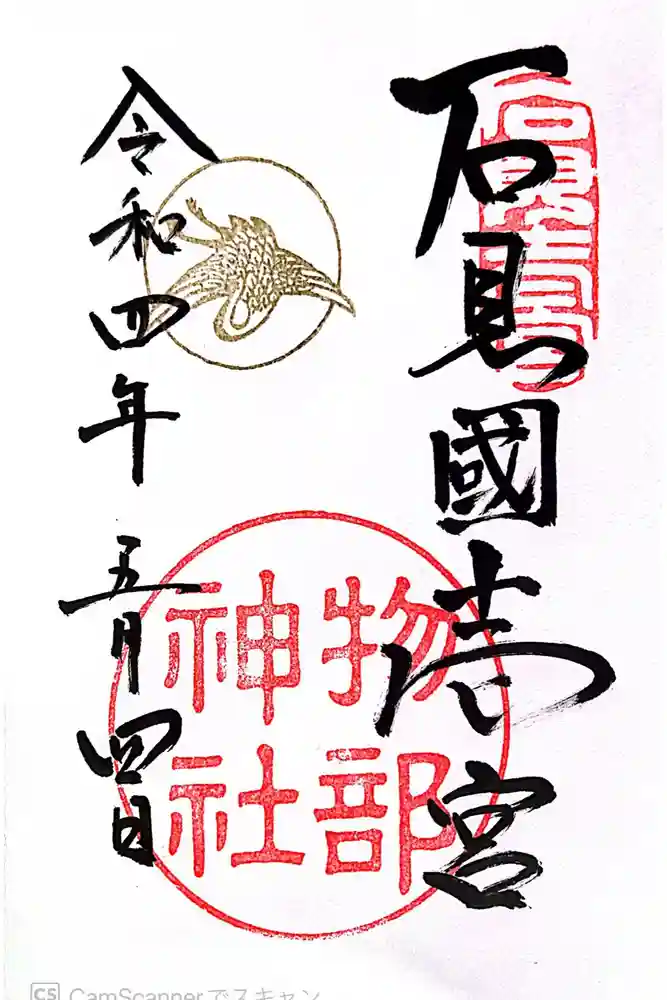 石見國壱宮
石見壱宮
物部
神社
令和四年
五月四日
CamScannerでスキャン